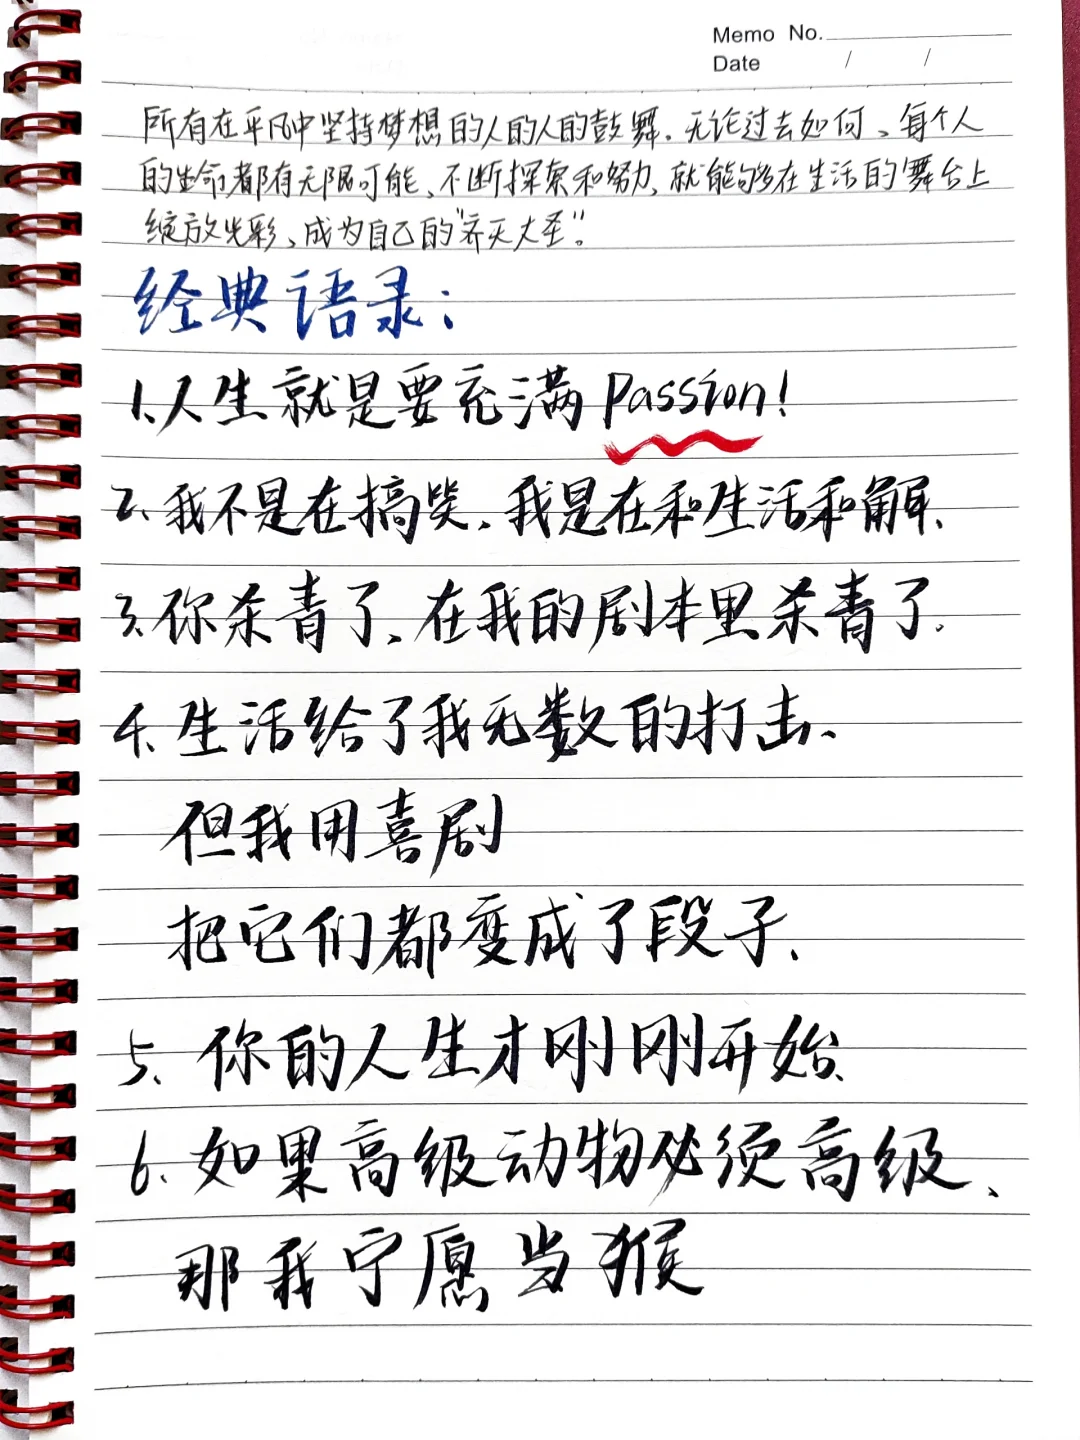 Memo No.
Date / /
所有在平凡中坚持梦想的人的人的鼓舞.无论过去如何、每个人
的生命,都有无限可能、不断探索和努力、就能够在生活的舞台上
绽放光彩、成为自己的"齐天大圣"。
经典语录:
1.人生就是要充满Passion!
2、我不是在搞笑.我是在和生活和解、
3.你杀青了、在我的剧本里杀青了.
4、生活给了我无数的打击、
但我用喜剧
把它们都变成了段子、
5、你的人生才刚刚开始、
6、如果高级动物必须高级、
那我宁愿当猴